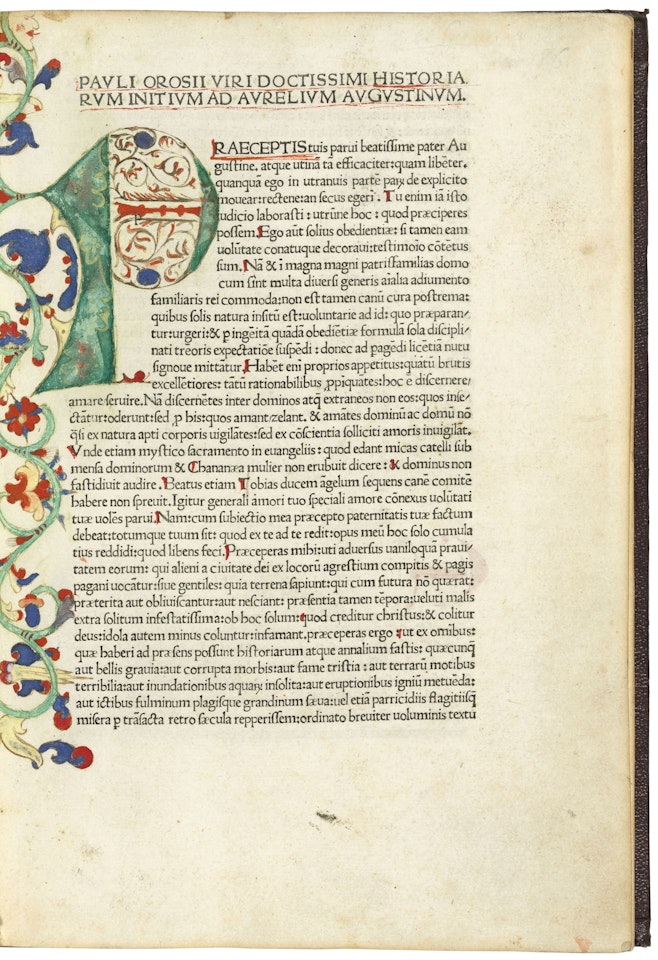 PAVLI OROSII VIRI DOCTISSIMI HISTORIA
RVM INITIVM AD AVRELIVM AVGVSTINVM.
PRAECEPTIS tuis parui beatissime pater Au
gustine. atque utinā tā efficaciter: quam libēter.
quanquā ego in utranuis partē paꝝ de explicito
mouear: rectene: an secus egeri. Tu enim iā isto
iudicio laborasti: utrūne hoc: quod præciperes
possem. Ego aūt solius obedientiæ: si tamen eam
uolūtate conatuque decoraui: testimoīo cōtētus
sum. Nā & ī magna magni patrisfamilias domo
cum sint multa diuersi generis aīalia adiumento
familiaris rei commoda: non est tamen canū cura postrema:
quibus solis natura insitū est: uoluntarie ad id: quo præparan/
tur: urgeri: & ꝑ ingēitā quādā obedientiæ formulā sola discipli/
nati treoris expectatiōe suspēdi: donec ad pagēdi licētiā nutu
signoue mittātur. Habēt enī proprios appetitus: quātū brutis
excellētiores: tātū rationabilibus ꝓpīquates: hoc ē discernere/
amare seruire. Nā discernētes inter dominos atqꝫ extraneos non eos: quos inse/
ctātur: oderunt: sed ꝓ his: quos amant/zelant. & amātes dominū ac domū nō
q̄si ex natura apti corporis uigilātes: sed ex cōscientia solliciti amoris inuigilāt.
Vnde etiam mystico sacramento in euangeliis: quod edant micas catelli sub
mensa dominorum & Chananæa mulier non erubuit dicere: & dominus non
fastidiuit audire. Beatus etiam Tobias ducem āgelum sequens canē comitē
habere non spreuit. Igitur generali amori tuo speciali amore cōnexus uolūtati
tuæ uolēs parui. Nam: cum subiectio mea præcepto paternitatis tuæ factum
debeat: totumque tuum sit: quod ex te ad te redit: opus meū hoc solo cumula
tius reddidi: quod libens feci. Præceperas mihi: uti aduersus uaniloquā praui/
tatem eorum: qui alieni a ciuitate dei ex locorū agrestium compitis & pagis
pagani uocātur: siue gentiles: quia terrena sapiunt: qui cum futura nō quærāt:
præterita aut obliuiscantur: aut nesciant: præsentia tamen tēpora: ueluti malis
extra solitum infestatissima: ob hoc solum: quod creditur christus: & colitur
deus: idola autem minus coluntur: infamant. præceperas ergo: ut ex omībus:
quæ haberi ad præsens possunt historiarum atque annalium fastis: quæcunqꝫ
aut bellis grauia: aut corrupta morbis: aut fame tristia: aut terrarū motibus
terribilia: aut inundationibus aquaꝝ insolita: aut eruptionibus igniū metuēda:
aut ictibus fulminum plagisque grandinum sæua: uel etiā parricidiis flagitiisqꝫ
misera ꝑ trāsacta retro sæcula repperissem: ordinato breuiter uoluminis textu